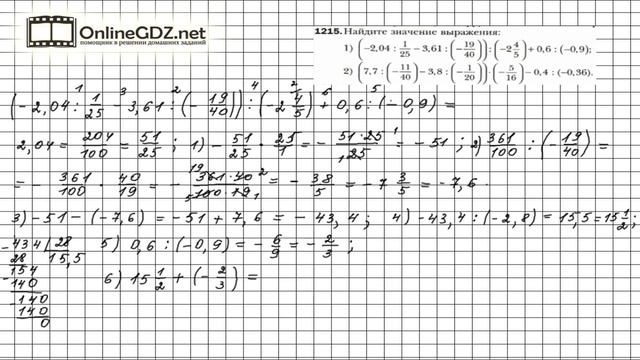 OnlineGDZ.net
помощник в решении домашних заданий
1215. Найдите значение выражения:
1) (-2,04 : 1/25 - 3,61 : (-19/40)) : (-2 4/5) + 0,6 : (-0,9);
2) (7,7 : (-11/40) - 3,8 : (-1/20)) · (-5/16) - 0,4 : (-0,36).
(-2,04 : 1/25 - 3,61 : (-19/40)) : (-2 4/5) + 0,6 : (-0,9) =
2,04 = 204/100 = 51/25 ; 1) -51/25 · 25/1 = -51·25/25 = -51 ; 2) 361/100 : (-19/40) =
= -361/100 · 40/19 = -361·40/100·19 = -38/5 = -7 3/5 = -7,6 .
3) -51 - (-7,6) = -51 + 7,6 = -43,4 ; 4) -43,4 : (-2,8) = 15,5 = 15 1/2 ;
-434 | 28
28 | 15,5
154
-140
-140
140
0
5) 0,6 : (-0,9) = -6/9 = -2/3 ;
6) 15 1/2 + (-2/3) =